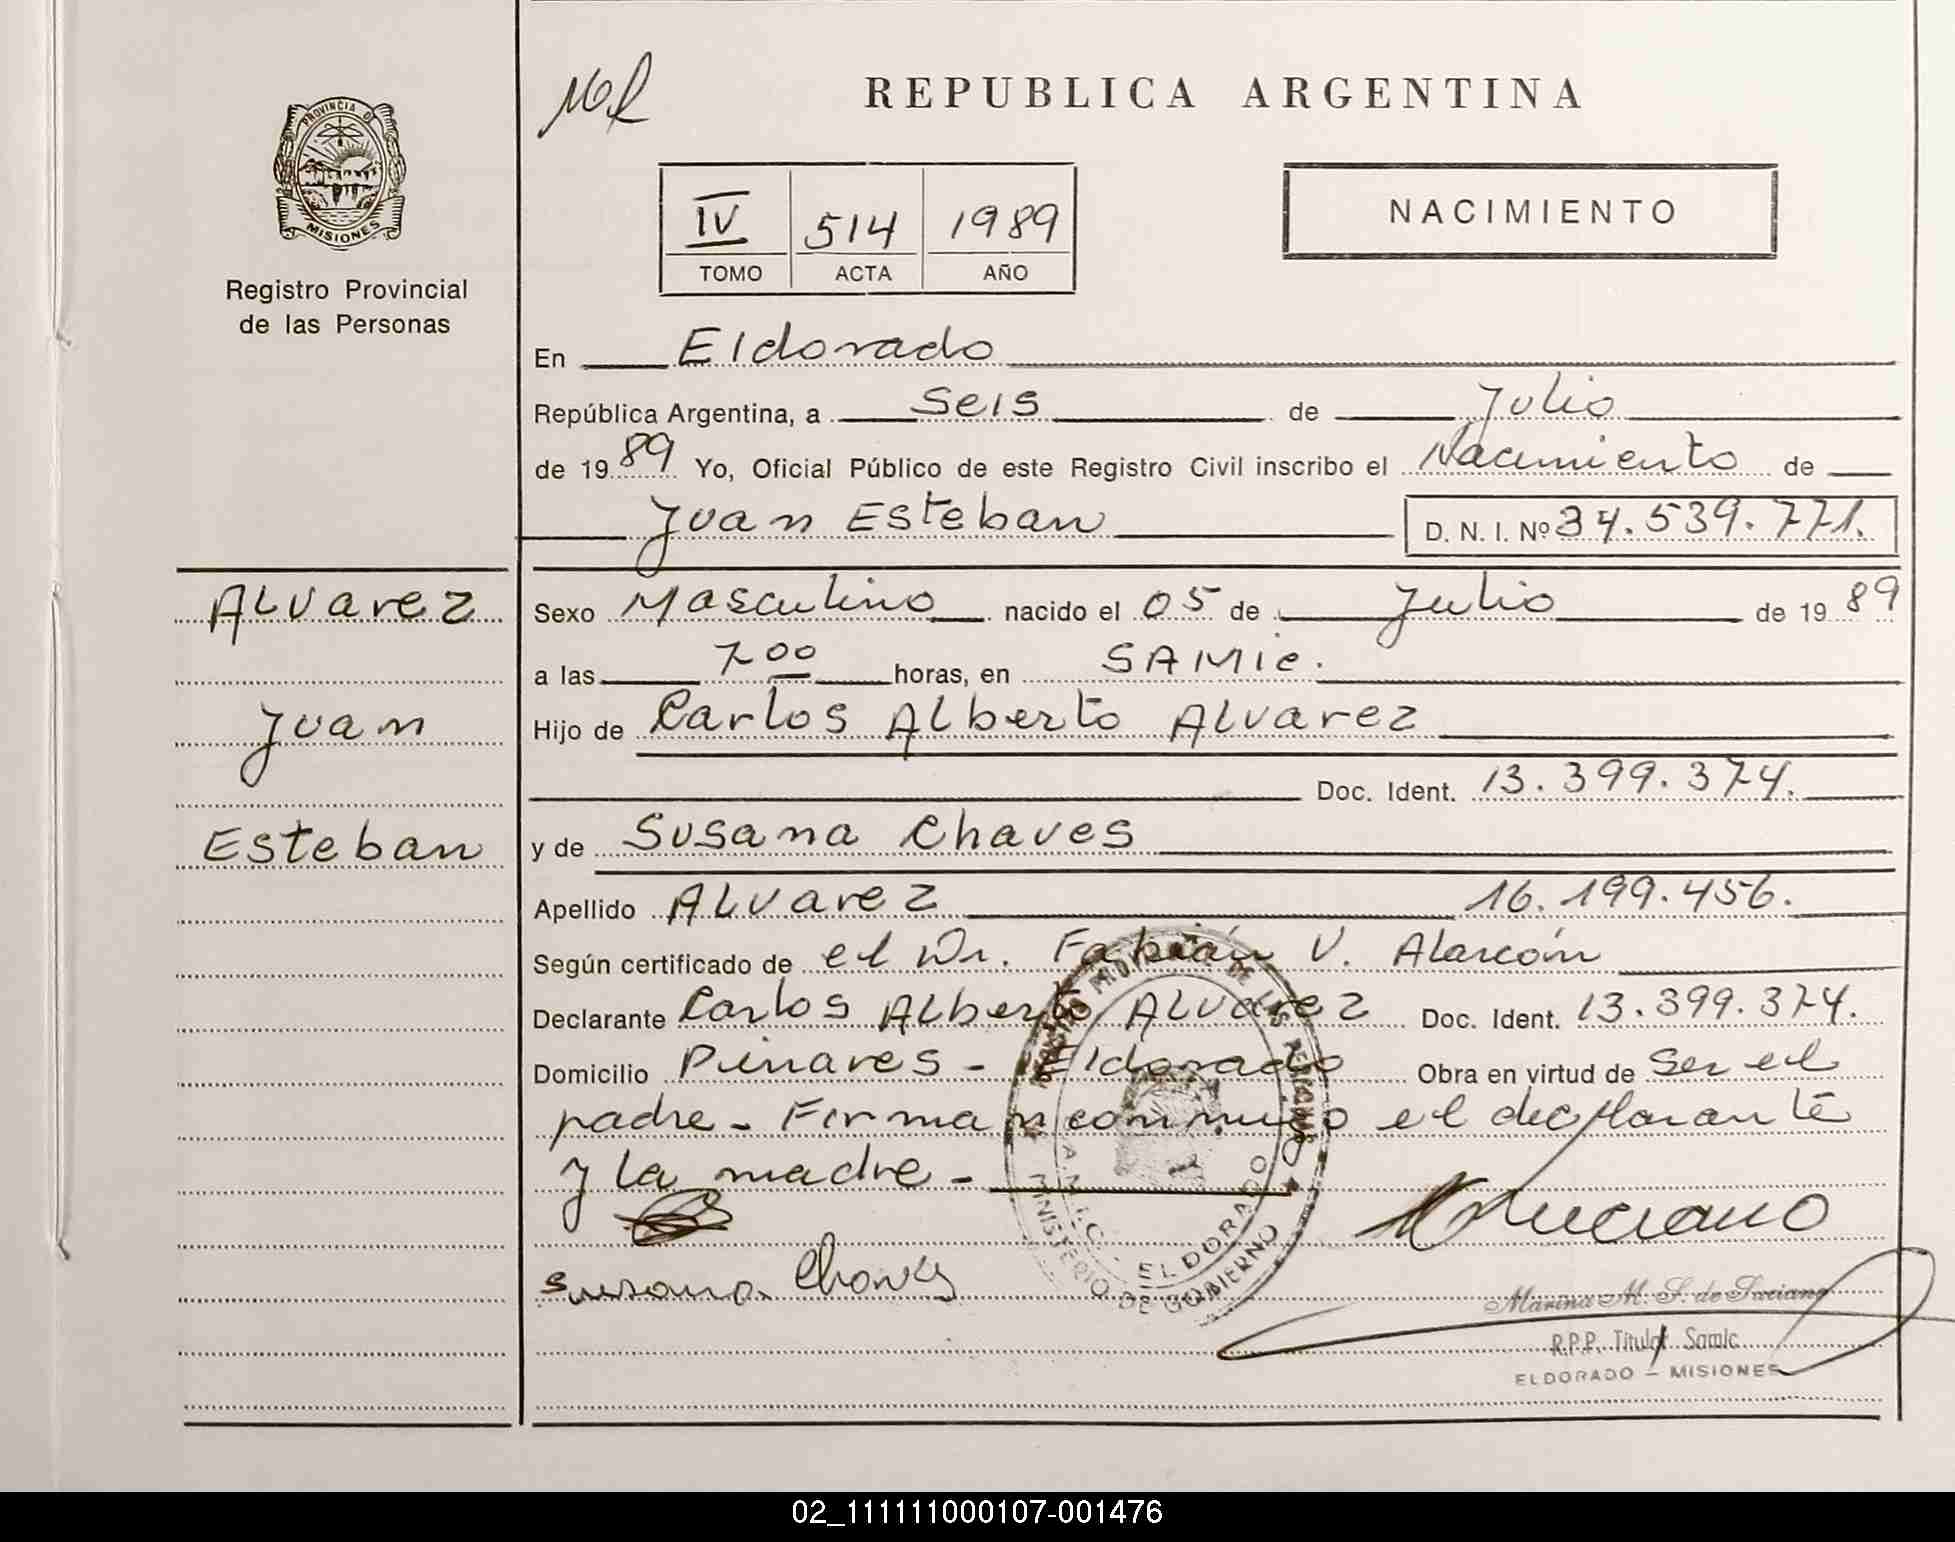 REPUBLICA ARGENTINA
PROVINCIA DE
MISIONES
Registro Provincial
de las Personas
IV 514 1989
TOMO ACTA AÑO
NACIMIENTO
En Eldorado
República Argentina, a seis de Julio
de 1989 Yo, Oficial Público de este Registro Civil inscribo el Nacimiento de
Juan Esteban D. N. I. Nº 34.539.771.
Alvarez
Juan
Esteban
Sexo Masculino nacido el 05 de Julio de 1989
a las 7 00 horas, en SAMIC.
Hijo de Carlos Alberto Alvarez
Doc. Ident. 13.399.374.
y de Susana Chaves
Apellido Alvarez 16.199.456.
Según certificado de el Dr. Fabián V. Alarcón
Declarante Carlos Alberto Alvarez Doc. Ident. 13.399.374.
Domicilio Pinares - Eldorado Obra en virtud de ser el
padre - Firman conmigo el declarante
y la madre -
Susana Chaves
REGISTRO PROVINCIAL DE LAS PERSONAS
S.A.M.I.C. - ELDORADO
MINISTERIO DE GOBIERNO
Marina M. S. de Luciano
R.P.P. Titular Samic
ELDORADO - MISIONES
02_111111000107-001476